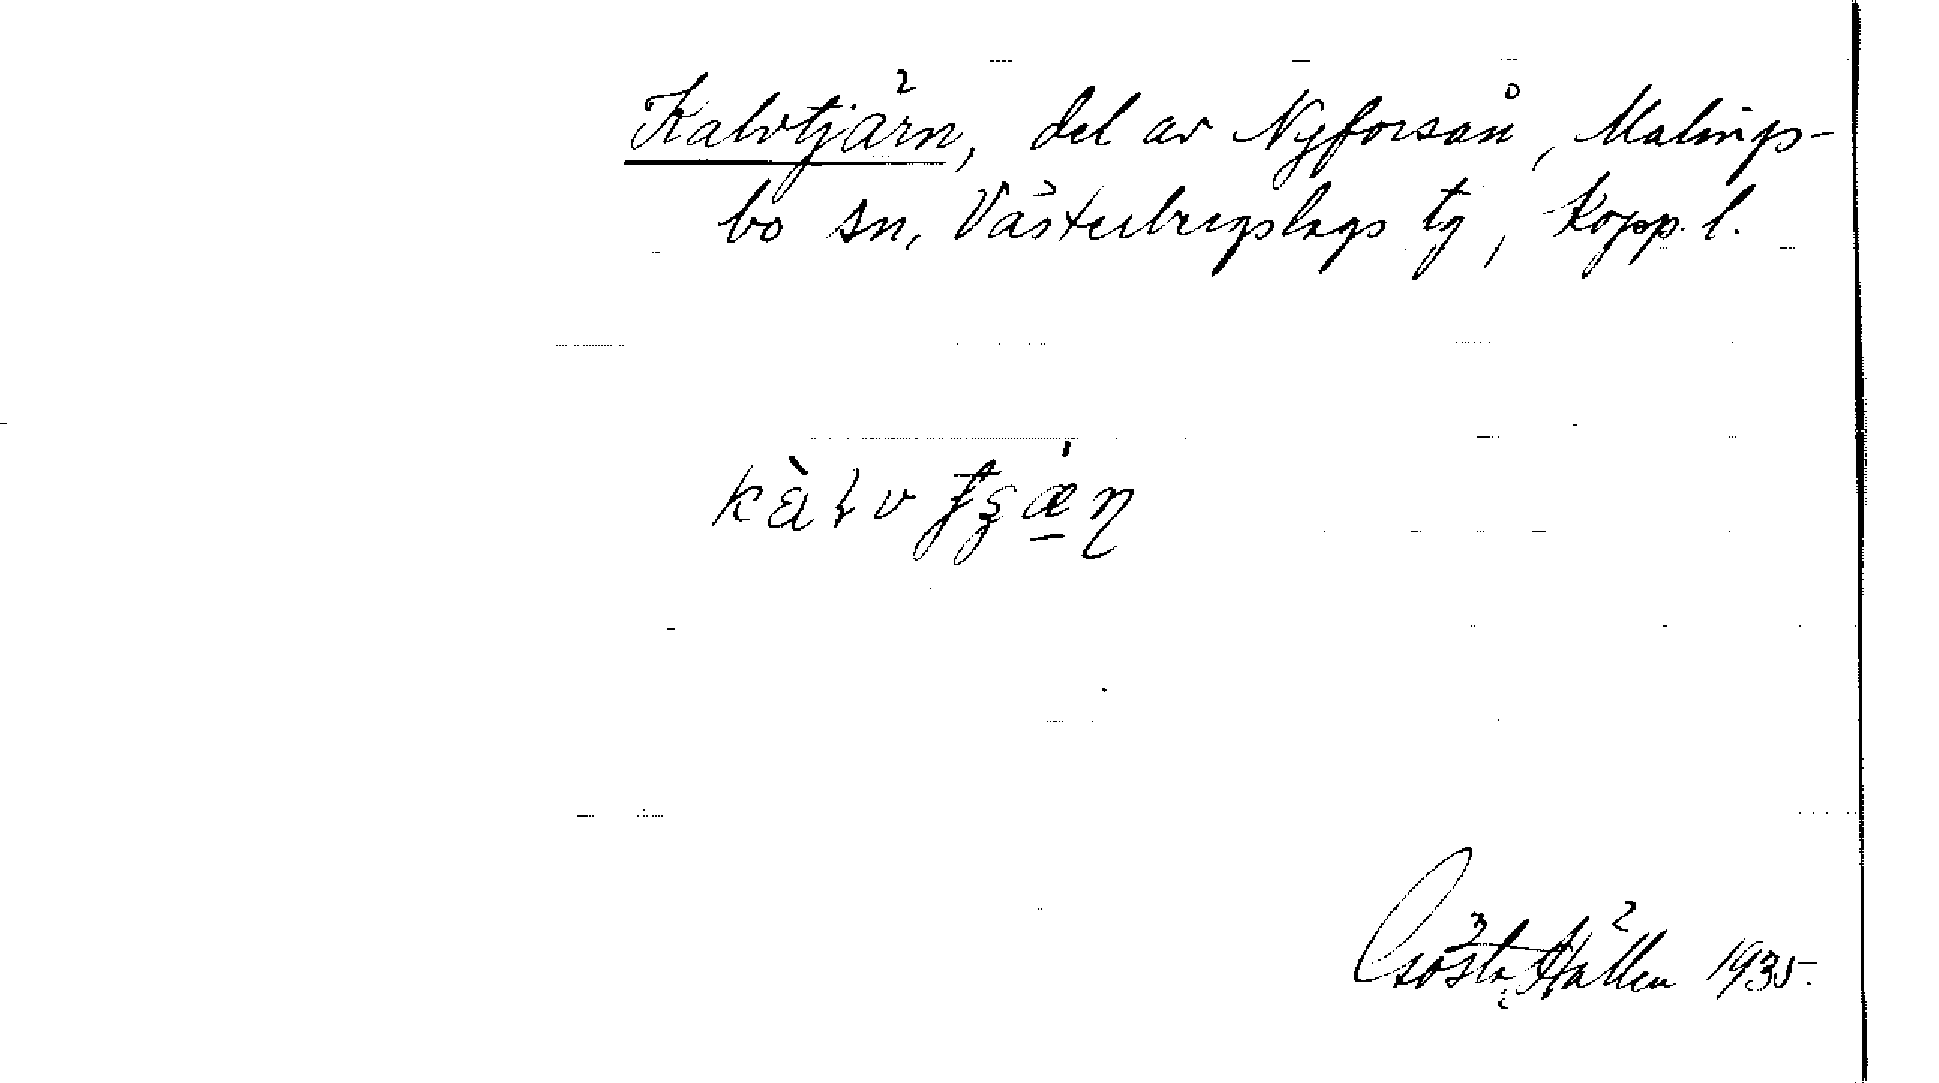 Kalvtjärn, del av Nyforsån, Malings-
bo sn, Västerbergslags tg, Kopp. l.
Gösta Hällen 1935.